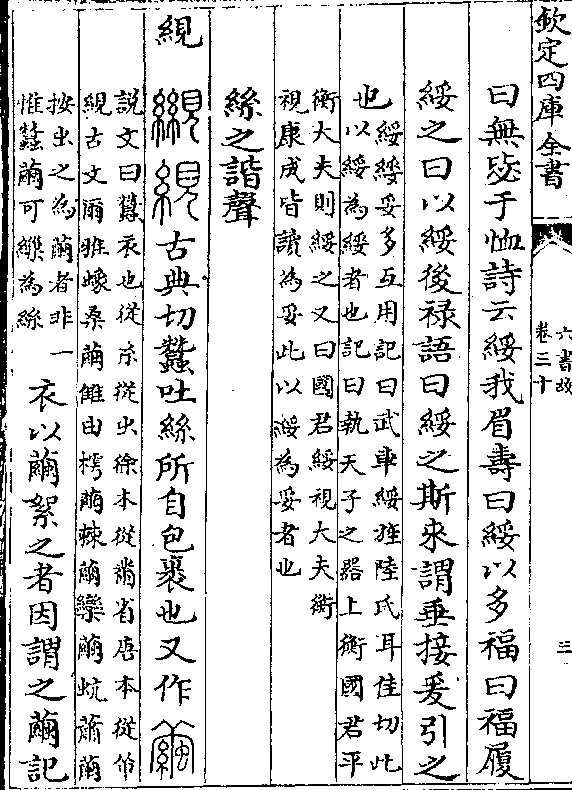 欽定四庫全書
六書故
卷三十
三
曰無毖于恤詩云綏我眉壽曰綏以多福曰福履
綏之曰以綏後祿語曰綏之斯來謂垂接爰引之
也
綏綏妥多互用記曰武車綏旌陸氏耳佳切此
以綏為綏者也記曰執天子之器上衡國君平
衡大夫則綏之又曰國君綏視大夫衡
視康成皆讀為妥此以綏為妥者也
絲之諧聲
絸
古典切蠶吐絲所自包裹也又作繭
説文曰蠶衣也從糸從虫徐本從黹省唐本從
絸古文爾雅蟓桑繭雔由樗繭棘繭欒繭蚢蕭繭
按虫之為繭者非一
惟蠶繭可繅為絲
衣以繭絮之者因謂之繭記